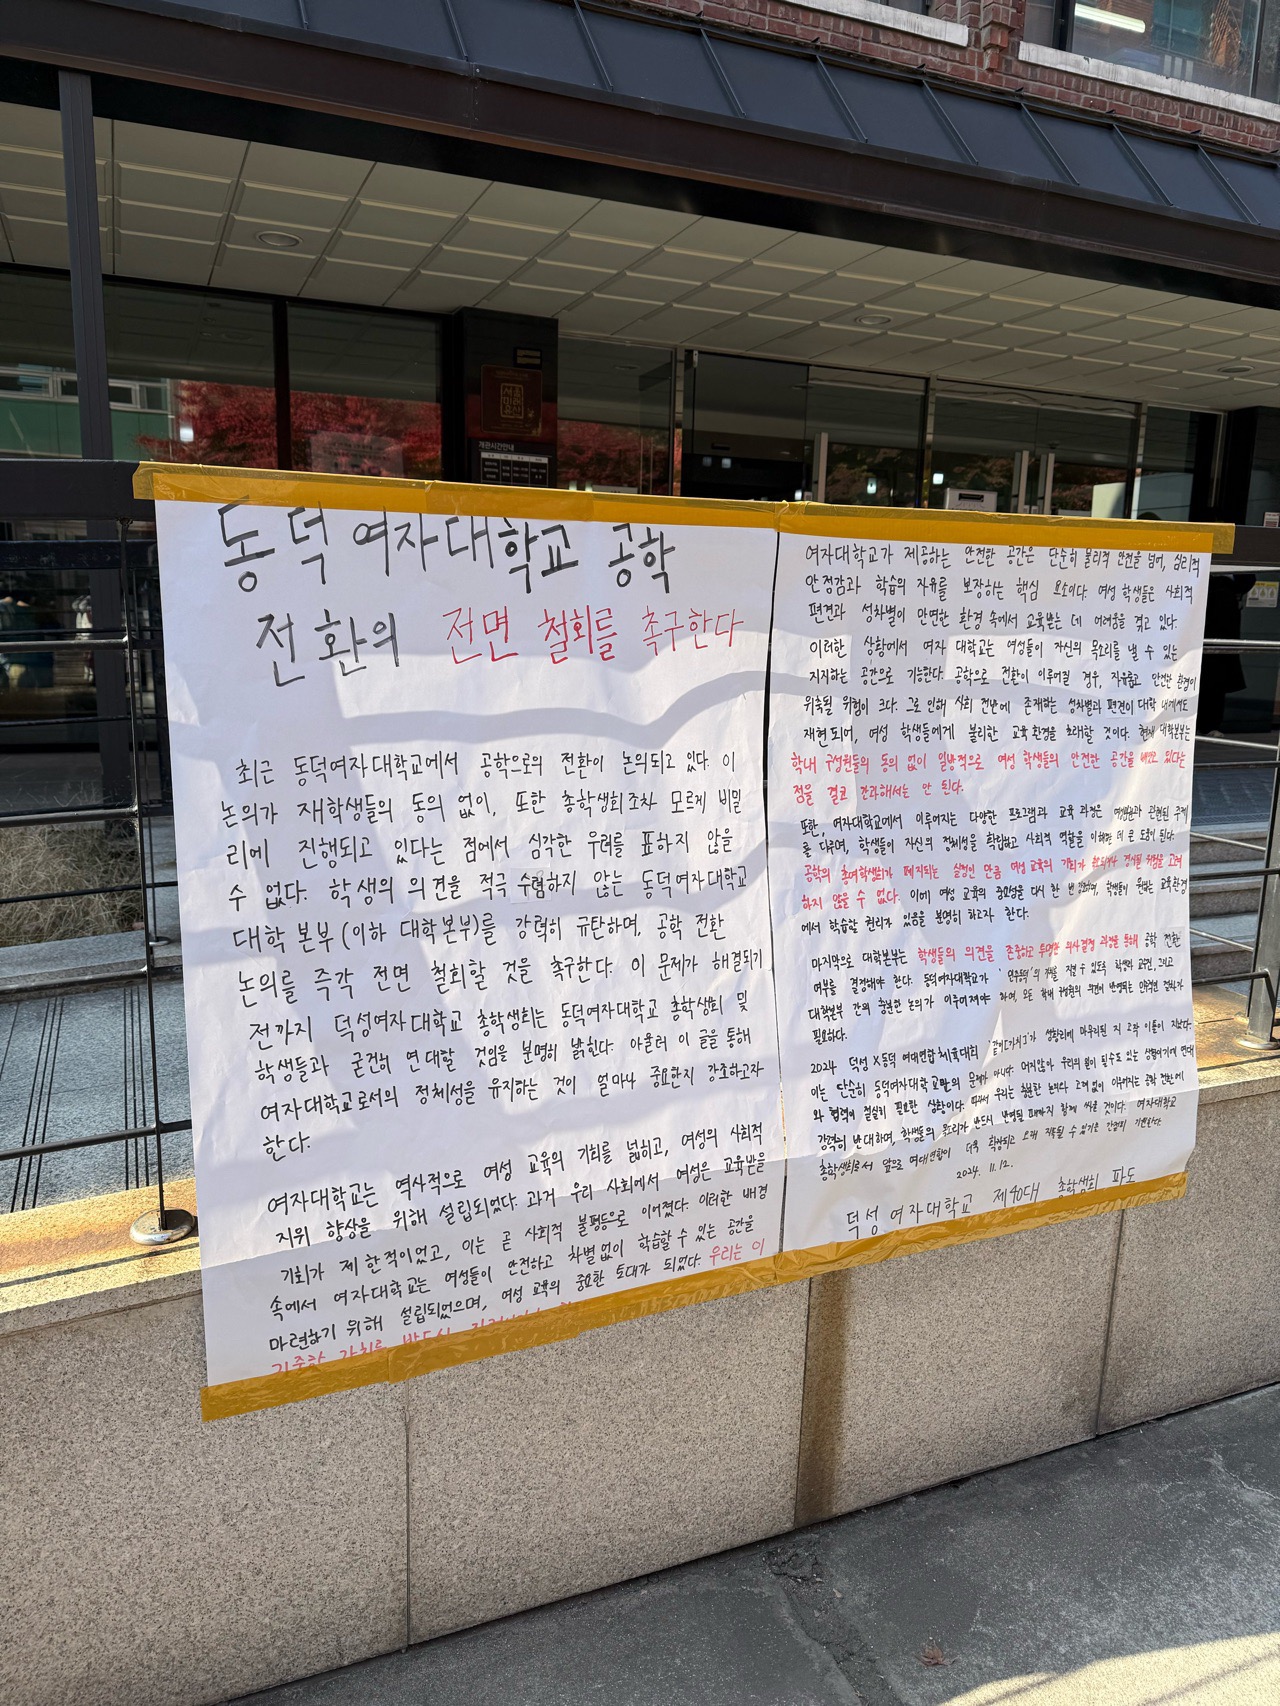 서울
미래
유산
개관시간안내
동덕여자대학교 공학
전환의 전면 철회를 촉구한다
최근 동덕여자대학교에서 공학으로의 전환이 논의되고 있다. 이
논의가 재학생들의 동의 없이, 또한 총학생회조차 모르게 비밀
리에 진행되고 있다는 점에서 심각한 우려를 표하지 않을
수 없다. 학생의 의견을 적극 수렴하지 않는 동덕여자대학교
대학 본부(이하 대학본부)를 강력히 규탄하며, 공학 전환
논의를 즉각 전면 철회할 것을 촉구한다. 이 문제가 해결되기
전까지 덕성여자대학교 총학생회는 동덕여자대학교 총학생회 및
학생들과 굳건히 연대할 것임을 분명히 밝힌다. 아울러 이 글을 통해
여자대학교로서의 정체성을 유지하는 것이 얼마나 중요한지 강조하고자
한다.
여자대학교는 역사적으로 여성 교육의 기회를 넓히고, 여성의 사회적
지위 향상을 위해 설립되었다. 과거 우리 사회에서 여성은 교육받을
기회가 제한적이었고, 이는 곧 사회적 불평등으로 이어졌다. 이러한 배경
속에서 여자대학교는 여성들이 안전하고 차별없이 학습할 수 있는 공간을
마련하기 위해 설립되었으며, 여성 교육의 중요한 토대가 되었다. 우리는 이
여자대학교가 제공하는 안전한 공간은 단순히 물리적 안전을 넘어, 심리적
안정감과 학습의 자유를 보장하는 핵심 요소이다. 여성 학생들은 사회적
편견과 성차별이 만연한 환경 속에서 교육받는 데 어려움을 겪고 있다.
이러한 상황에서 여자 대학교는 여성들이 자신의 목소리를 낼 수 있는
지지하는 공간으로 기능한다. 공학으로 전환이 이루어질 경우, 자유롭고 안전한 환경이
위축될 위험이 크다. 그로 인해 사회 전반에 존재하는 성차별과 편견이 대학 내에서도
재현되어, 여성 학생들에게 불리한 교육 환경을 초래할 것이다. 현재 대학본부는
학내 구성원들의 동의 없이 일방적으로 여성 학생들의 안전한 공간을 빼앗고 있다는
점을 결코 간과해서는 안 된다.
또한, 여자대학교에서 이루어지는 다양한 프로그램과 교육 과정은 여성인권과 관련된 주제
를 다루며, 학생들이 자신의 정체성을 확립하고 사회적 역할을 이해하는 데 큰 도움이 된다.
공학의 총여학생회가 폐지되는 실정인 만큼 여성 교육의 기회가
하지 않을 수 없다. 이에 여성 교육의 중요성을 다시 한 번 강조하며, 학생들이 원하는 교육환경
에서 학습할 권리가 있음을 분명히 하고자 한다.
마지막으로 대학본부는 학생들의 의견을 존중하고 투명한 의사결정 과정을 통해 공학 전환
여부를 결정해야 한다. 동덕여자대학교가 지킬 수 있도록 학생과 교원, 그리고
대학본부 간의 충분한 논의가 이루어져야 하며, 모든 학내 구성원의 의견이 반영되는 민주적인 절차가
필요하다.
2024 덕성X동덕 여대연합체육대회 상황리에 마무리된 지 고작 이틀이 지났다.
이는 단순히 동덕여자대학교만의 문제가 아니다. 머지않아 우리의 일이 될 수도 있는 상황이기에 연대
와 협력이 절실히 필요한 상황이다. 따라서 우리는 충분한 논의와 고려 없이 이루어지는 공학 전환에
강력히 반대하며, 학생들의 권리가 반드시 반영될 때까지 함께 싸울 것이다. 여자대학교
총학생회로서 앞으로 여대연합이 더욱 확장되고 오래 지속될 수 있기를 간절히 기원한다.
2024. 11. 12.
덕성여자대학교 제40대 총학생회 파도